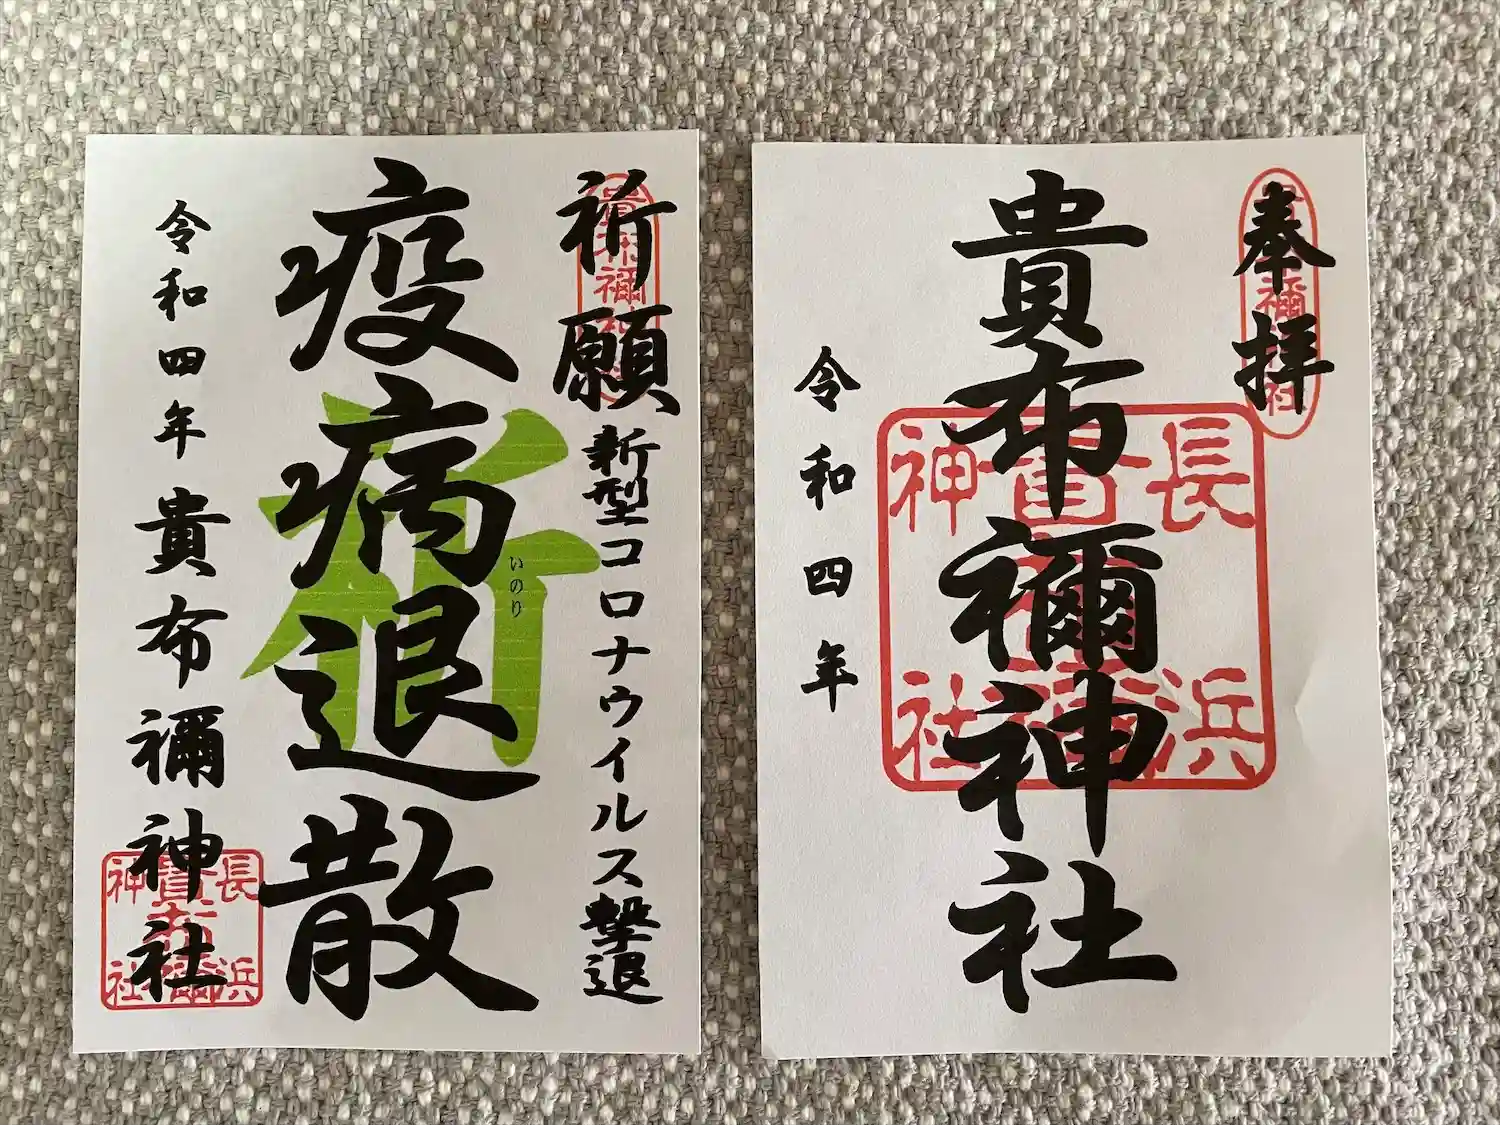 祈願
新型コロナウイルス撃退
疫病退散
祈
いのり
令和四年
貴布禰神社
長浜
貴布禰
神社
奉拝
貴布禰神社
令和四年
長浜
貴布禰
神社